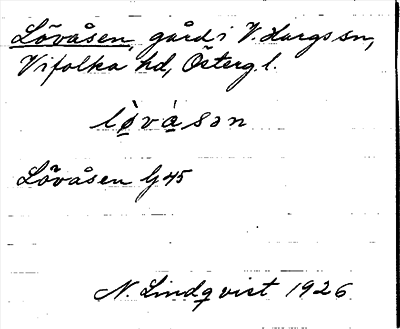 Lövåsen, gård i V. Hargs sn,
Vifolka hd, Österg. l.
lö̀vàsən
Lövåsen Gj 45
N. Lindqvist 1926